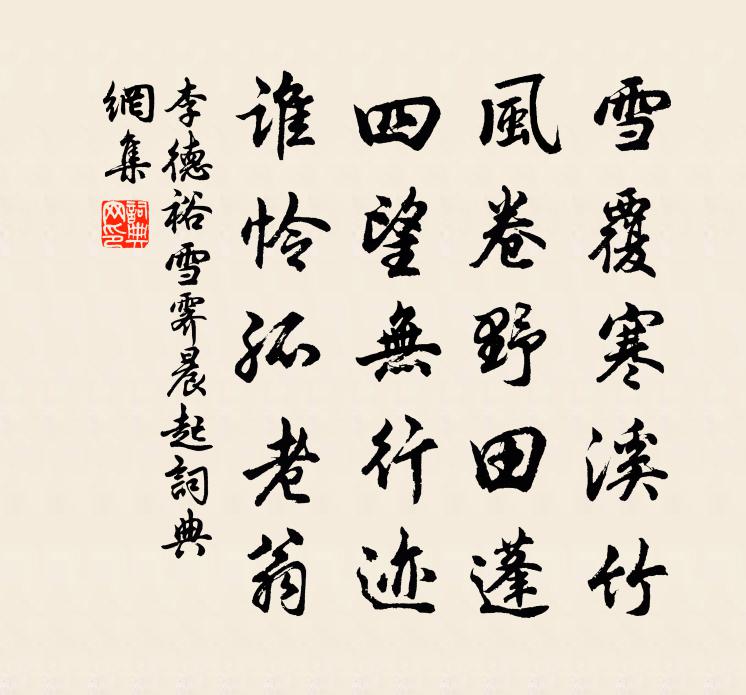 雪覆寒溪竹
風卷野田蓬
四望無行迹
誰怜孤老翁
李德裕雪霽晨起詞典
網集
詞典
网印